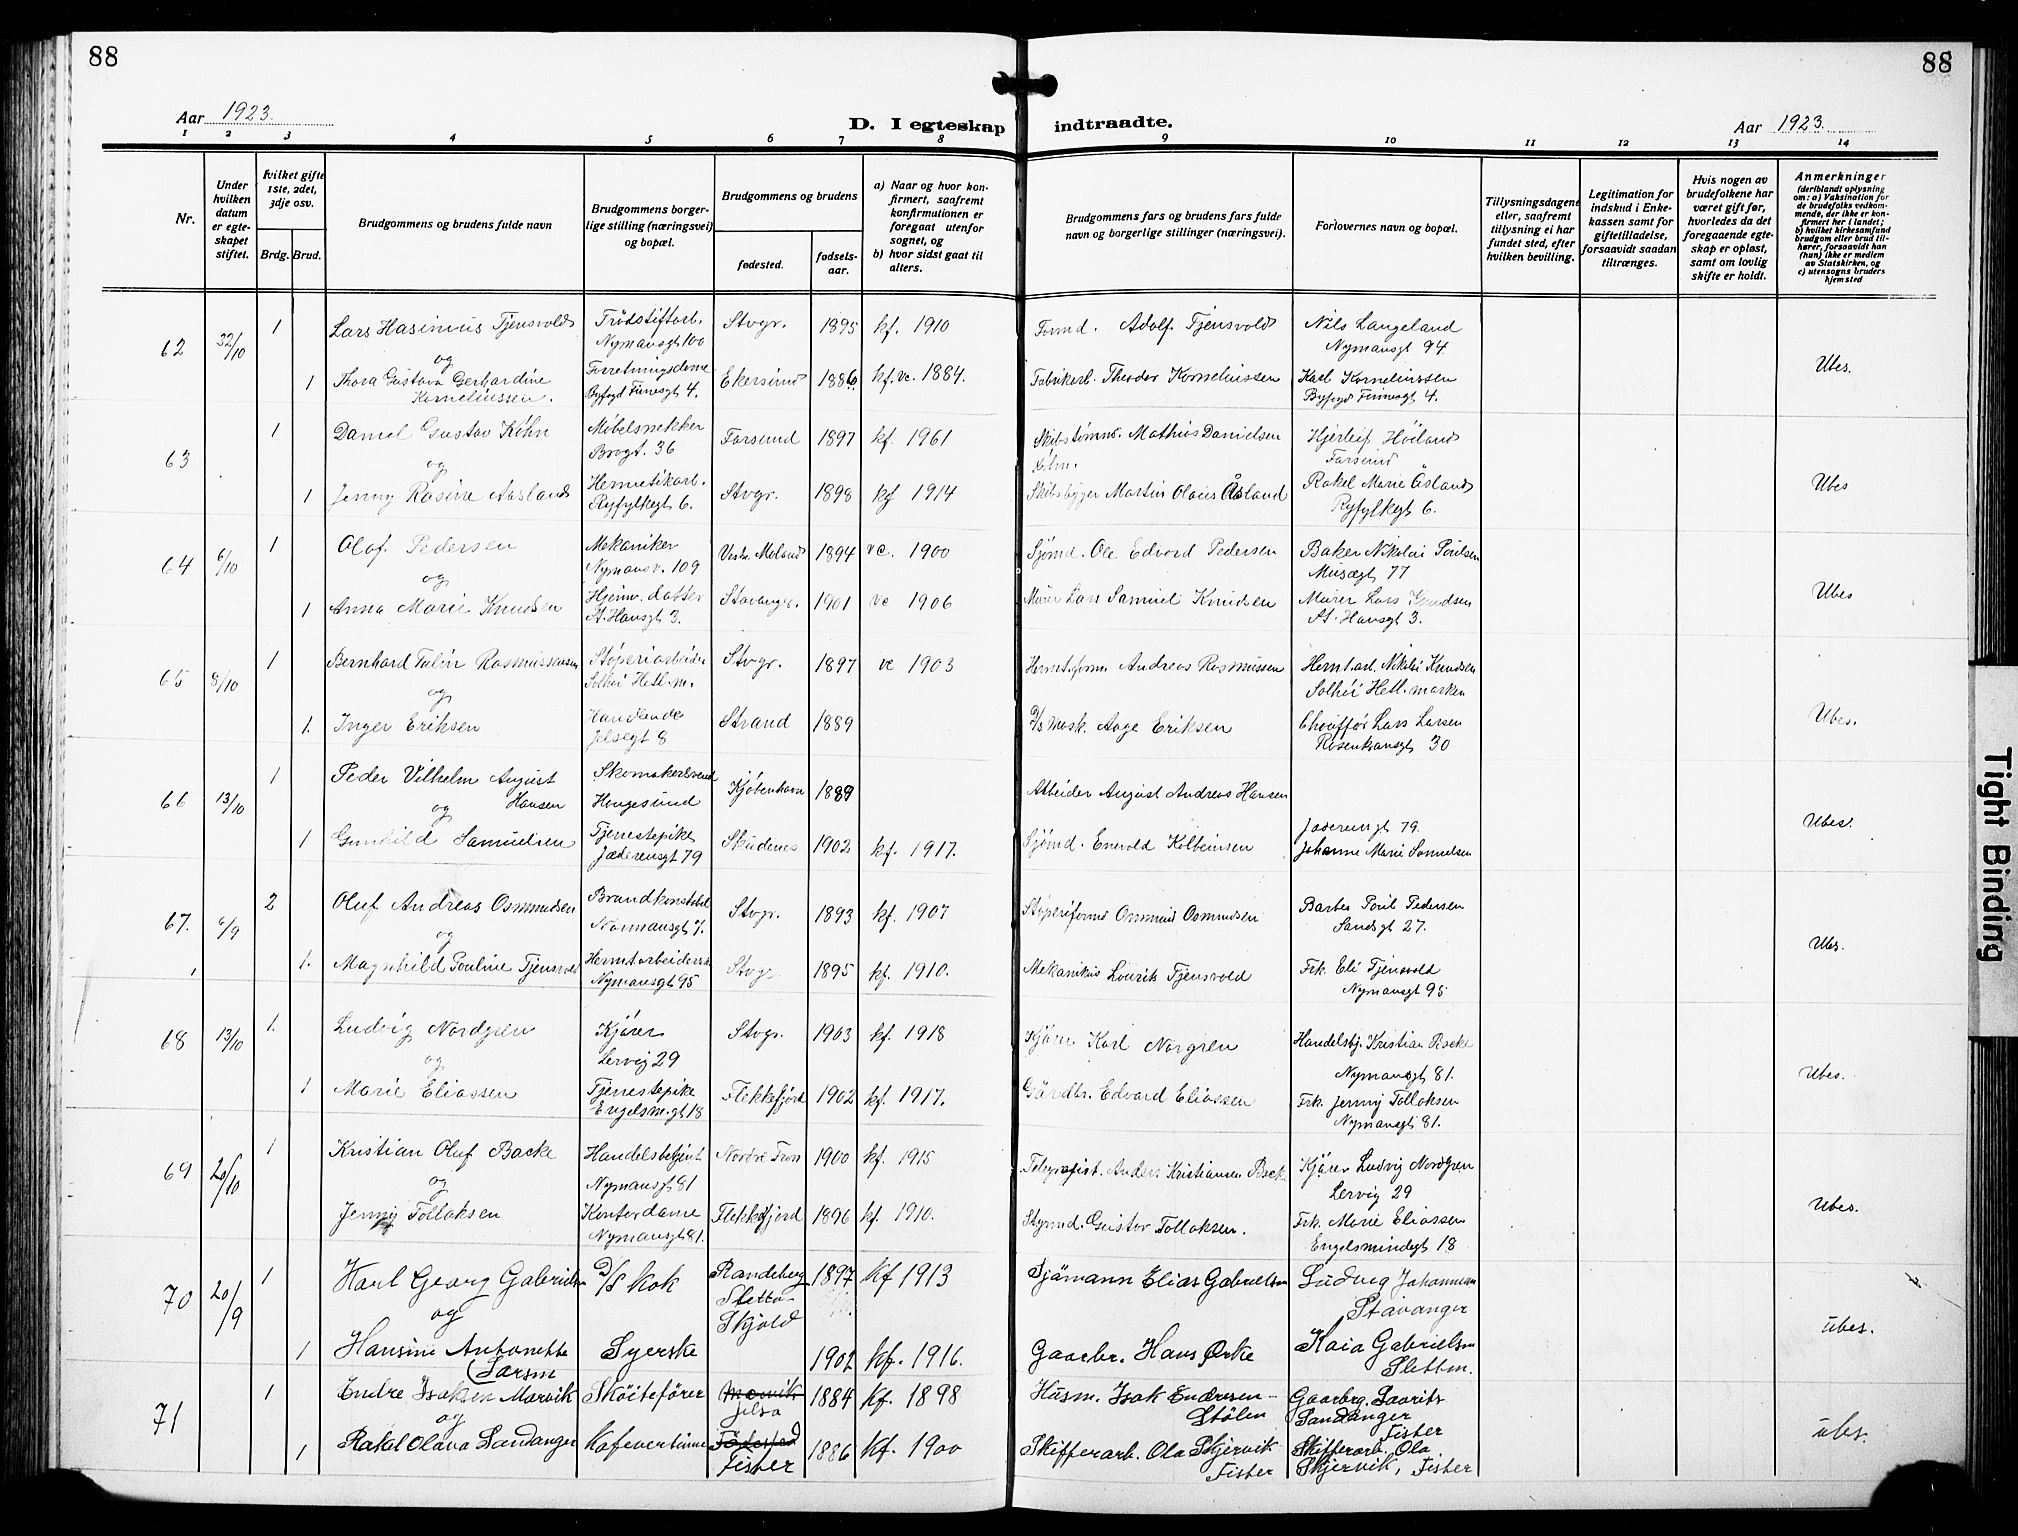 88
88
Aar 1923.
D. I egteskap indtraadte.
Aar 1923.
1 2 3 4 5 6 7 8 9 10 11 12 13 14
Nr.
Under hvilken datum er egte-skapet stiftet.
hvilket gifte 1ste, 2det, 3dje osv.
Brdg. Brud.
Brudgommens og brudens fulde navn
Brudgommens borger-lige stilling (næringsvei) og bopæl.
Brudgommens og brudens
fødested.
fødsels-aar.
a) Naar og hvor kon-firmert, saafremt konfirmationen er foregaat utenfor sognet, og
b) hvor sidst gaat til alters.
Brudgommens fars og brudens fars fulde navn og borgerlige stillinger (næringsvei).
Forlovernes navn og bopæl.
Tillysningsdagene eller, saafremt tillysning ei har fundet sted, efter hvilken bevilling.
Legitimation for indskud i Enke-kassen samt for giftetilladelse, forsaavidt saadan tiltrænges.
Hvis nogen av brudefolkene har været gift før, hvorledes da det foregaaende egte-skap er opløst, samt om lovlig skifte er holdt.
Anmerkninger
(deriblandt oplysning om: a) Vaksination for de brudefolks vedkom-mende, der ikke er kon-firmert her i landet;
b) hvilket kirkesamfund brudgom eller brud til-hører, forsaavidt han (hun) ikke er medlem av Statskirken, og
c) utensogns bruders hjemsted
62 22/10 1 Lars Hasinius Tjensvold Trådstiftarb. Nymansgt 100 Stvgr. 1895 kf. 1910 Formd. Adolf Tjensvold Nils Langeland Nymansgt 94
og
1 Thora Gustava Gerhardine Korneliussen. Forretningsdame 4. Ekersund 1886 kf. vc. 1884. Fabrikarb. Theodor Korneliussen Karl Korneliussen 4. Ubes.
63 1 Daniel Gustav Köhn Møbelsnekker Brogt. 36 Farsund 1897 kf 1961 Skibstømm. Mathias Danielsen Köhn. Hjerleif Höiland Farsund
og
1 Jenny Rasine Aasland Hermetikarb. Ryfylkegt 6. Stvgr. 1898 kf 1914 Skibsbygger Martin Olaus Åsland Rakel Marie Åsland Ryfylkegt 6. Ubes
64 6/10 1 Olaf Pedersen Mekaniker Nymansv. 109 Vestr. Moland 1894 vc. 1900 Sjømd. Ole Edvard Pedersen Baker Nikolai Poulsen Musægt 77
og
1 Anna Marie Knudsen Hjemv. datter St. Hansgt 3. Stavanger. 1901 vc 1906 Murer Lars Samuel Knudsen Murer Lars Knudsen St. Hansgt 3. Ubes
65 8/10 1 Bernhard Tulin Rasmussen Støperiarbeider Solhöi Hetl. m. Stvgr. 1897 vc 1903 Hermt.form. Andreas Rasmussen Hermt.arb. Nikolai Knudsen Solhöi Hetl. marken
og
1. Inger Eriksen Jelsegt 8 Strand 1889 Aage Eriksen Chauffør Lars Larsen Rosenkransgt 30 Ubes.
66 13/10 1 Peder Vilhelm August Hansen Skomakersvend Haugesund Kjøbenhavn 1889 Arbeider August Andreas Hansen
og
1 Gunhild Samuelsen Tjenestepike Jæderensgt 79 Skudenes 1902 kf. 1917. Sjømd. Enevold Kolbeinsen Jæderensgt 79. Johanne Marie Samuelsen Ubes.
67. 6/9 2 Oluf Andreas Osmundsen Brandkonstabel Stvgr. 1893 kf. 1907 Støperiformd Osmund Osmundsen Barber Poul Pedersen Sandsgt 27.
og
1. Magnhild Pouline Tjensvold Hermtarbeiderske Nymansgt 95 Stvgr. 1895 kf. 1910. Mekanikus Lourits Tjensvold Frk. Eli Tjensvold Nymansgt 95 Ubes.
68 13/10 1. Ludvig Nordgren Kjører Lervig 29 Stvgr. 1903 kf. 1918 Kjører Karl Norgren Handelsbj. Kristian Backe Nymansgt 81.
og
1 Marie Eliassen Tjenestepike Engelsm.gt 18 Flekkefjord 1902 kf. 1917. Gårdbr. Edvard Eliassen Frk. Jenny Tollaksen Nymansgt 81. Ubes.
69 20/10 1 Kristian Oluf Backe Handelsbetjent. Nymansgt 81 Nordre Fron 1900 kf. 1915 Telegrafist. Anders Kristiansen Backe Kjører Ludvig Nordgren Lervig 29
og
Jenny Tollaksen Kontordame Nymansgt 81. Flekkefjord 1896 kf. 1910. Styrmd. Gustav Tollaksen. Frk. Marie Eliassen Engelsmindegt 18 Ubes.
70 20/9 1 Karl Georg Gabrielsen D/S kok Randeberg Sletto Skjold 1897 kf 1913 Sjømann Elias Gabrielsen Ludvig Johannesen Stavanger
og
1 Hansine Antonette Larsen Syerske 1902 kf. 1916. Gaarbr. Hans Ørke Kaia Gabrielsen Sletten. ubes.
71 1 Endre Isaksen Marvik Skøitefører Marvik Jelsa 1884 kf. 1898 Husm. Isak Endresen Stølen Gaarbrg. Laurits Sandanger Fister
og
1 Rakel Olava Sandanger Kafevertinne Fister 1886 kf. 1900 Skifferarb. Ola Skjervik Fister Skifferarb. Ola Skjervik, Fister ubes.
Tight Binding